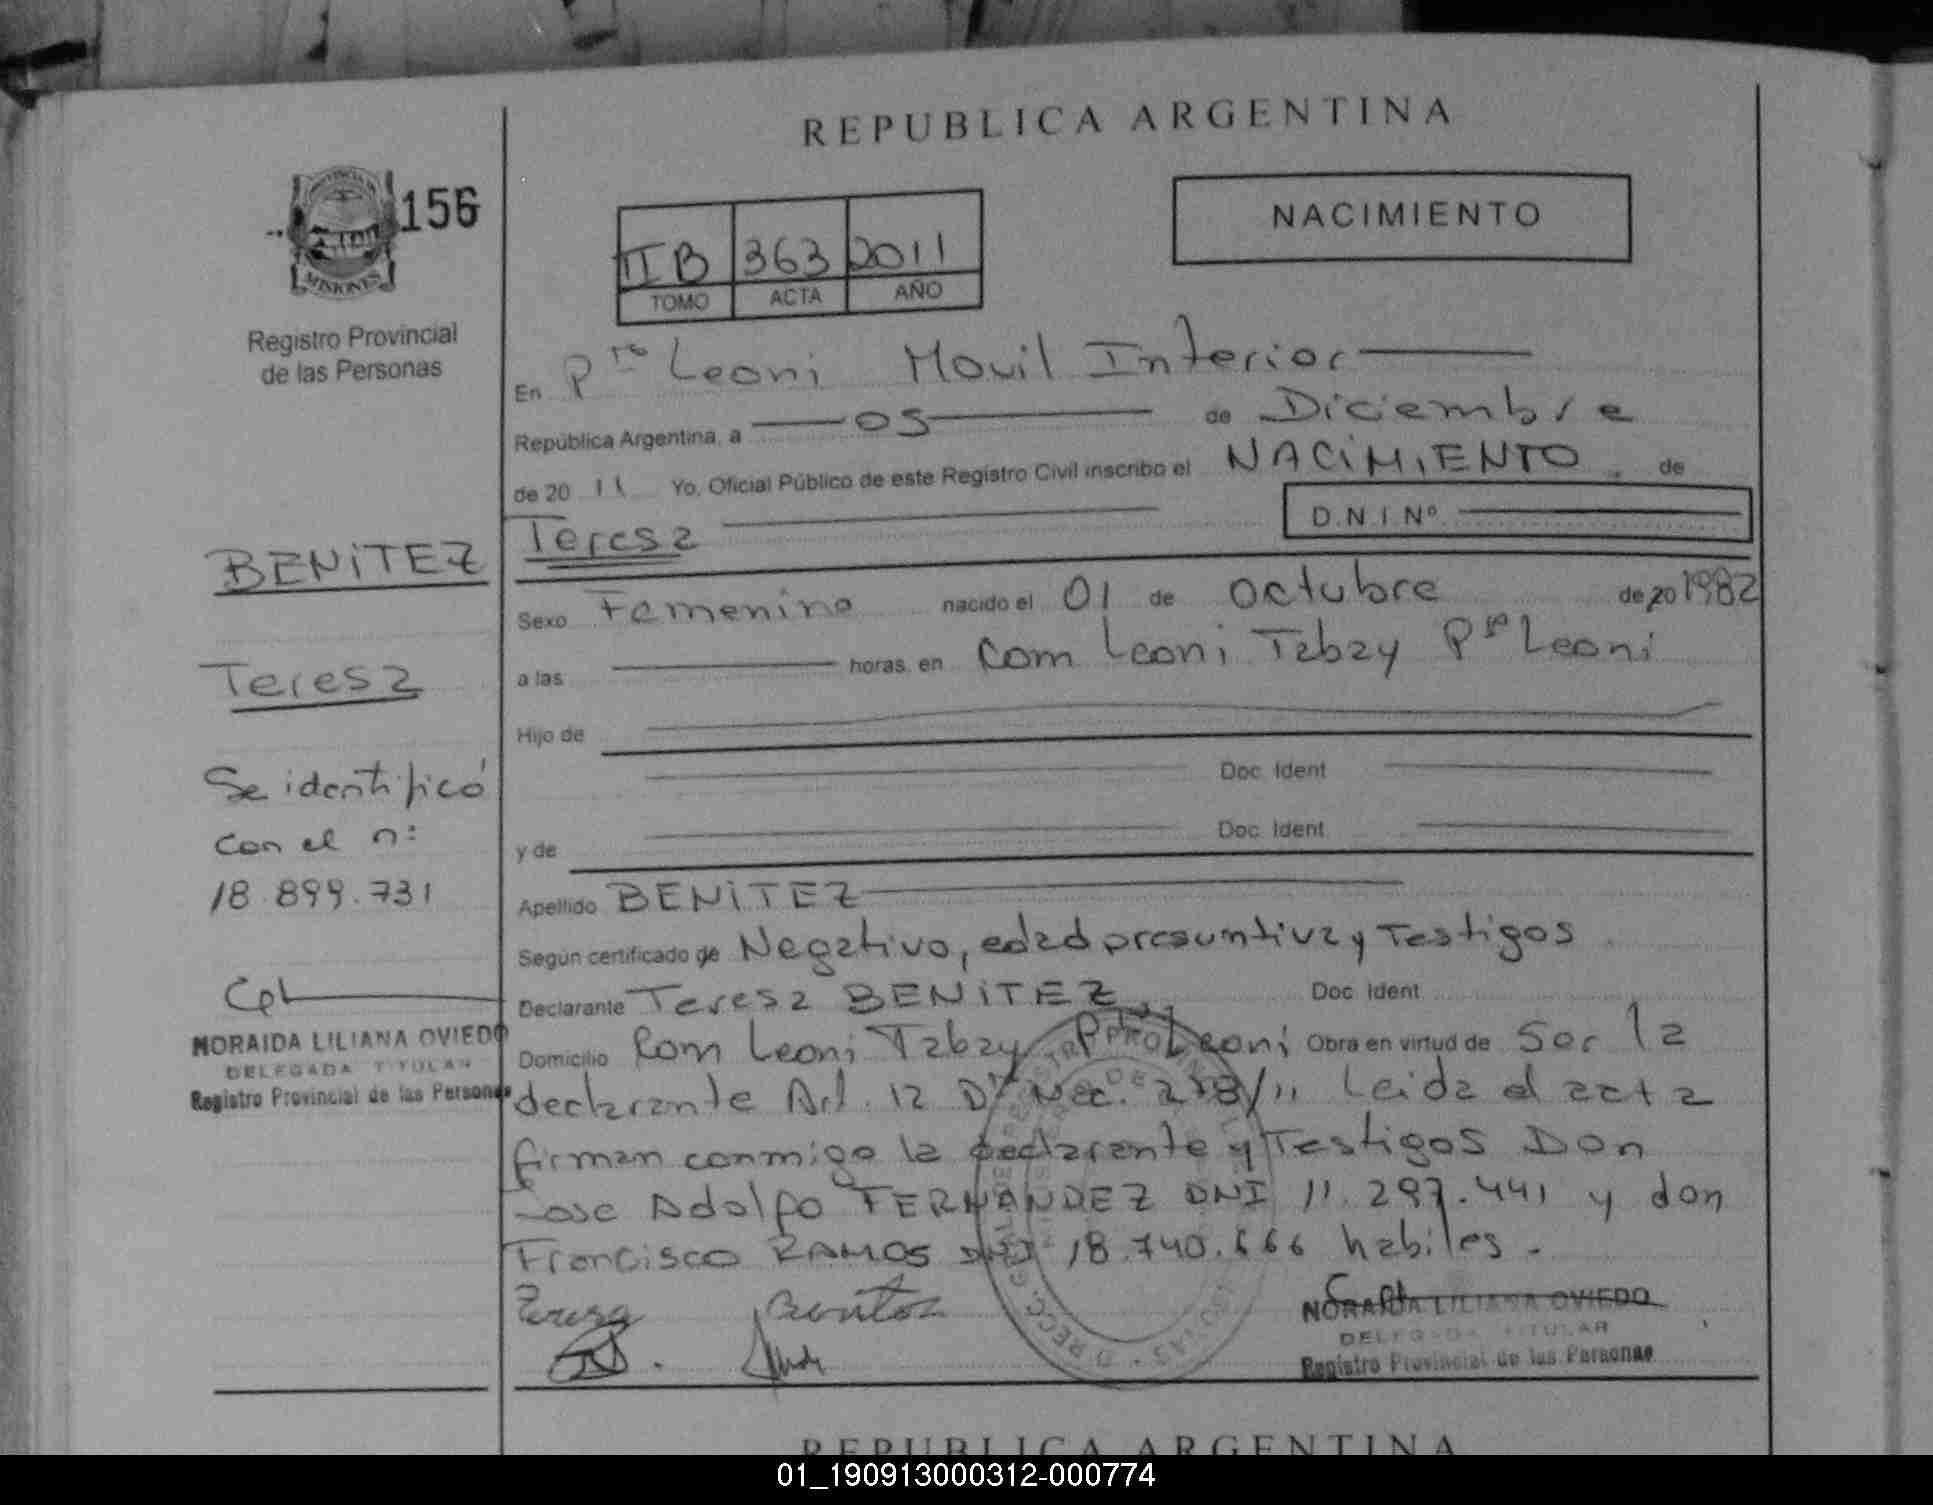 REPUBLICA ARGENTINA
PROVINCIA DE
MISIONES
156
Registro Provincial
de las Personas
IIB 363 2011
TOMO ACTA AÑO
NACIMIENTO
En Pto Leoni Movil Interior
República Argentina, a 05 de Diciembre
de 20 11 Yo, Oficial Público de este Registro Civil inscribo el NACIMIENTO de
Teresa
D.N.I. Nº
BENITEZ
Teresa
Se identificó
con el n:
18.899.731
NORAIDA LILIANA OVIEDO
DELEGADA TITULAR
Registro Provincial de las Personas
Sexo Femenino nacido el 01 de Octubre de 20 1982
a las horas, en Com Leoni Tabay Pto Leoni
Hijo de
Doc. Ident
y de Doc. Ident
Apellido BENITEZ
Según certificado de Negativo, edad presuntiva y Testigos
Declarante Teresa BENITEZ Doc. Ident
Domicilio Com Leoni Tabay Pto Leoni Obra en virtud de Ser la
declarante Art. 12 Leida el acta
firman conmigo la declarante y Testigos Don
Jose Adolfo FERNANDEZ DNI 11.297.441 y don
Francisco RAMOS DNI 18.740.666 habiles.
Teresa Benitez
NORAIDA LILIANA OVIEDO
DELEGADA TITULAR
Registro Provincial de las Personas
REPUBLICA ARGENTINA
01_190913000312-000774